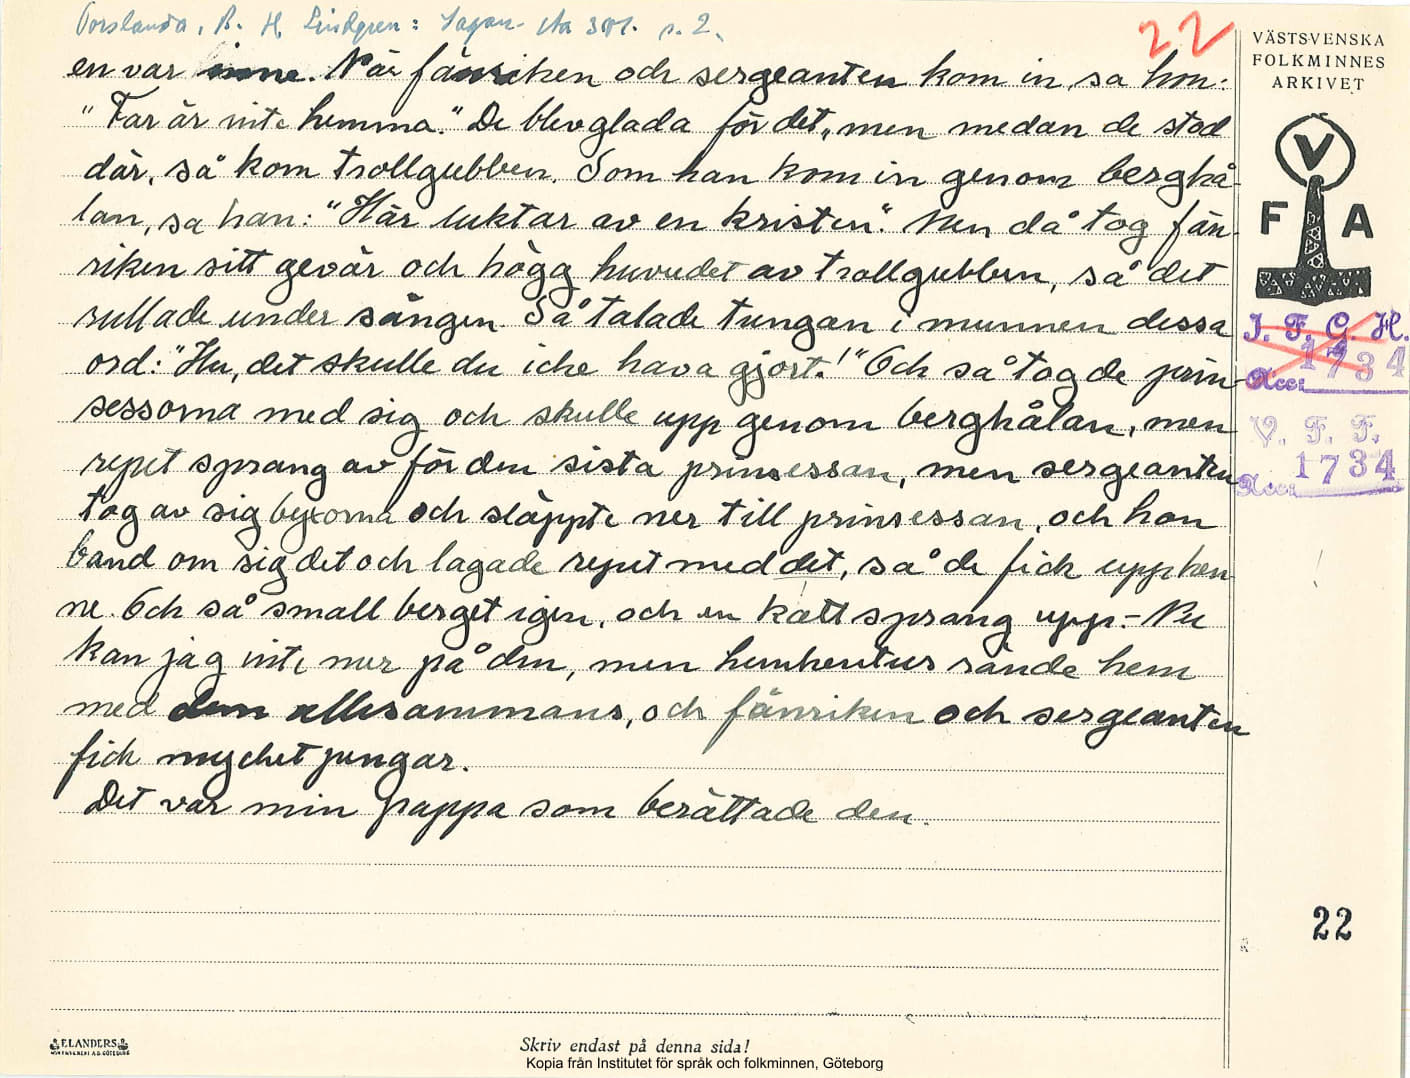 Torslanda, B. H. Lindgren: Sagan s. 2.
22
VÄSTSVENSKA
FOLKMINNES
ARKIVET
en var inne. När fänriken och sergeanten kom in, sa hon:
"Far är inte hemma." De blev glada för det, men medan de stod
där, så kom trollgubben. Som han kom in genom berghå-
lan, sa han: "Här luktar av en kristen". Men då tog fän-
riken sitt gevär och högg huvudet av trollgubben, så det
rullade under sängen Så talade tungan i munnen dessa
ord: "Hu, det skulle du icke hava gjort!" Och så tog de prin-
sessorna med sig och skulle upp genom berghålan, men
repet sprang av för den sista prinsessan, men sergeanten
tog av sig byxorna och släppte ner till prinsessan, och hon
band om sig det och lagade repet med det, så de fick upp hen-
ne. Och så small berget igen, och en katt sprang upp.- Nu
kan jag inte mer på den, men hunkentus rände hem
med dem allesammans, och fänriken och sergeanten
fick mycket pengar.
Det var min pappa som berättade den.
V
F A
I. F. G. H.
1734
Acc:
V. F. F.
1734
Acc:
22
ELANDERS
Skriv endast på denna sida!
Kopia från Institutet för språk och folkminnen, Göteborg